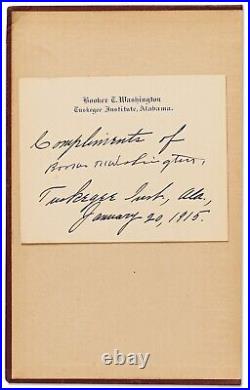 Booker T. Washington
Tuskegee Institute, Alabama.
Compliments of
Booker T. Washington,
Tuskegee Inst., Ala.,
January 20, 1915.